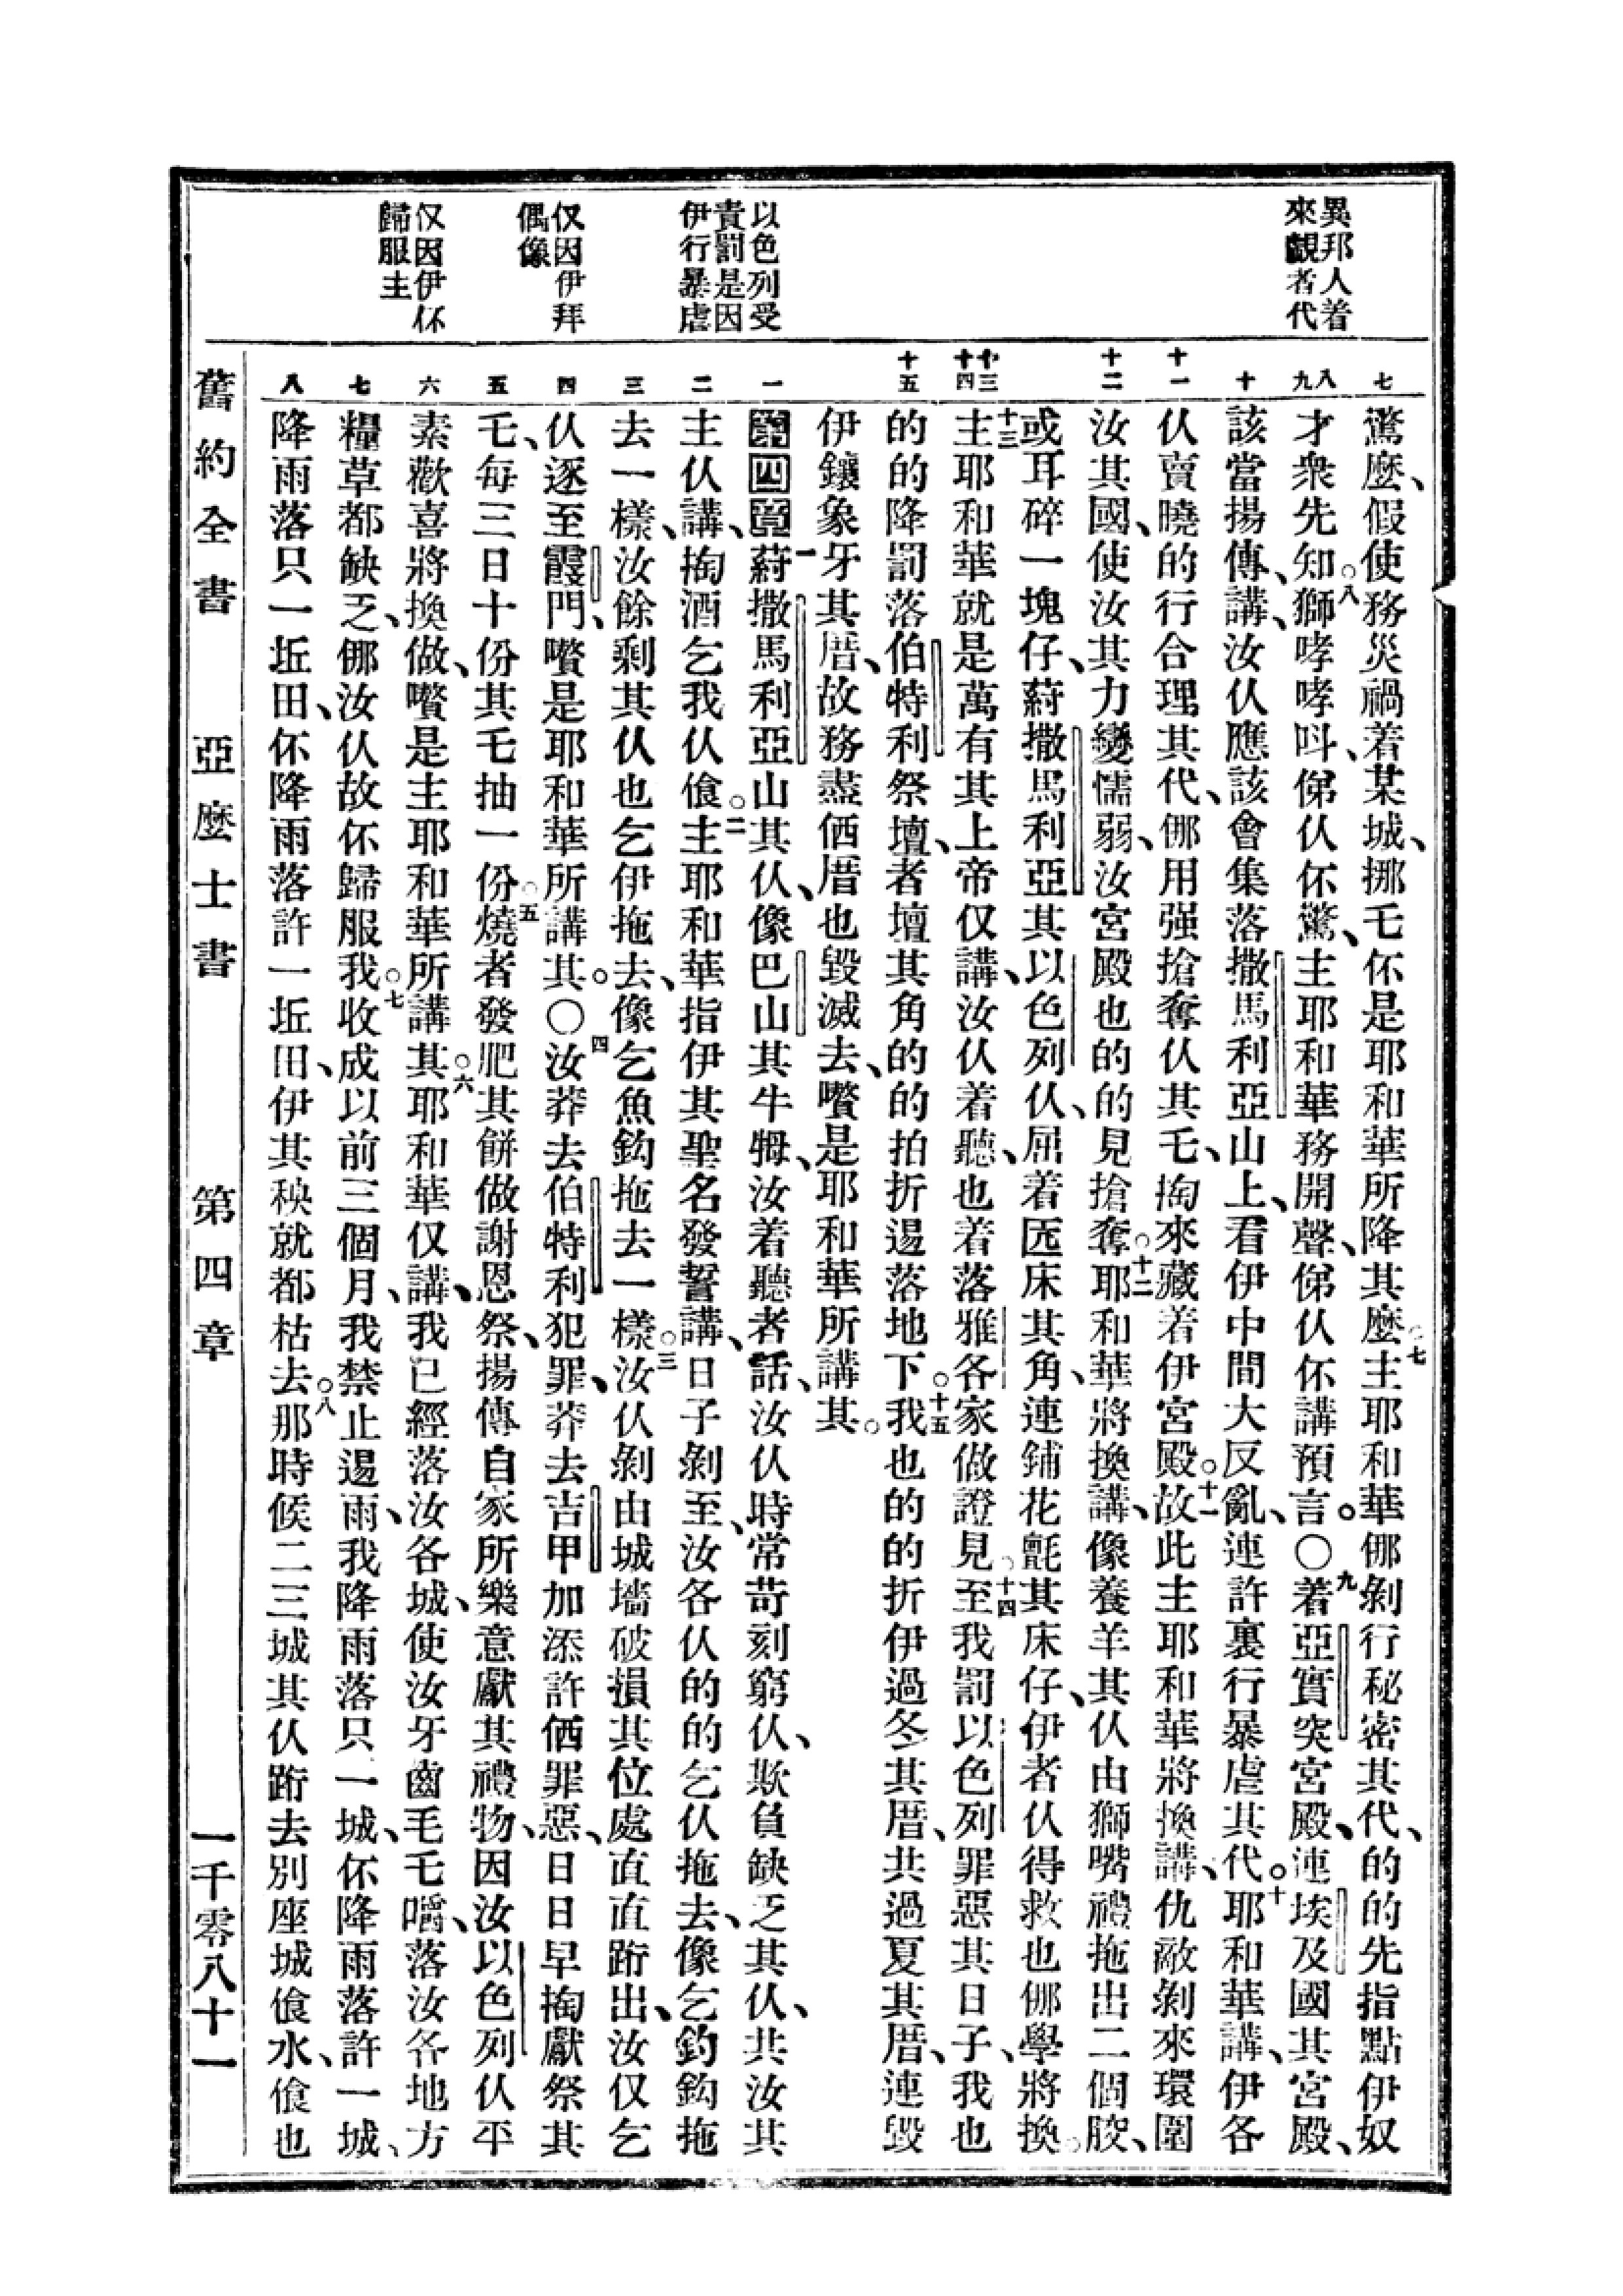 異邦人着
來覷者代
以色列受
責罰是因
伊行暴虐
仅因伊拜
偶像
仅因伊伓
歸服主
七
八
九
十
十一
十二
十三
十四
十五
一
二
三
四
五
六
七
八
驚麽、假使務災禍着某城、挪乇伓是耶和華所降其麽。七主耶和華㑚剝行秘密其代、的的先指點伊奴
才衆先知。八獅哮哮呌、俤仈伓驚、主耶和華務開聲、俤仈伓講預言。〇九着亞實突宮殿、連埃及國其宮殿、
該當揚傳、講、汝仈應該會集落撒馬利亞山上、看伊中間大反亂、連許裏行暴虐其代。十耶和華講、伊各
仈賣曉的行合理其代、㑚用强搶奪仈其乇、掏來藏着伊宮殿。十一故此主耶和華將換講、仇敵剝來環圍
汝其國、使汝其力變懦弱、汝宮殿也的的見搶奪。十二耶和華將換講、像養羊其仈由獅嘴禮拖出二個骹、
或耳碎一塊仔、葑撒馬利亞其以色列仈、屈着匟床其角、連鋪花氈其床仔、伊者仈得救也㑚學將換。
十三主耶和華就是萬有其上帝仅講、汝仈着聽、也着落雅各家做證見。十四至我罰以色列罪惡其日子、我也
的的降罰落伯特利祭壇、者壇其角的的拍折逿落地下。十五我也的的折伊過冬其厝、共過夏其厝、連毀
伊鑲象牙其厝、故務盡価厝也毀滅去、嚽是耶和華所講其。
第四章一葑撒馬利亞山其仈、像巴山其牛牳、汝着聽者話、汝仈時常苛刻窮仈、欺負缺乏其仈、共汝其
主仈講、掏酒乞我仈飡。二主耶和華指伊其聖名發誓講、日子剝至、汝各仈的的乞仈拖去、像乞釣鈎拖
去一樣、汝餘剩其仈也乞伊拖去、像乞魚鈎拖去一樣。三汝仈剝由城墻破損其位處直直跕出、汝仅乞
仈逐至霞門、嚽是耶和華所講其。〇四汝莽去伯特利犯罪、莽去吉甲加添許価罪惡、日日早掏獻祭其
乇、每三日十份其乇抽一份。五燒者發肥其餅做謝恩祭、揚傳自家所樂意獻其禮物、因汝以色列仈平
素歡喜將換做、嚽是主耶和華所講其。六耶和華仅講、我已經落汝各城、使汝牙齒毛乇嚼、落汝各地方
糧草都缺乏、㑚汝仈故伓歸服我。七收成以前三個月、我禁止逿雨、我降雨落只一城、伓降雨落許一城、
降雨落只一坵田、伓降雨落許一坵田、伊其秧就都枯去。八那時候二三城其仈跕去別座城飡水、飡也
舊約全書　亞麽士書　第四章　一千零八十一